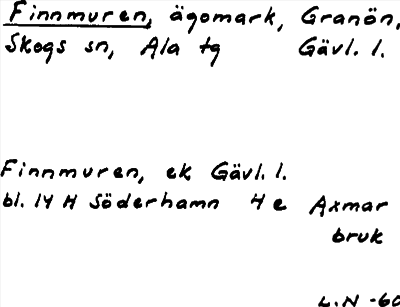 Finnmuren, ägomark, Granön,
Skogs sn, Ala tg Gävl. l.
Finnmuren, ek Gävl. l.
bl. 14 H Söderhamn 4 e Axmar
bruk
L.N -60